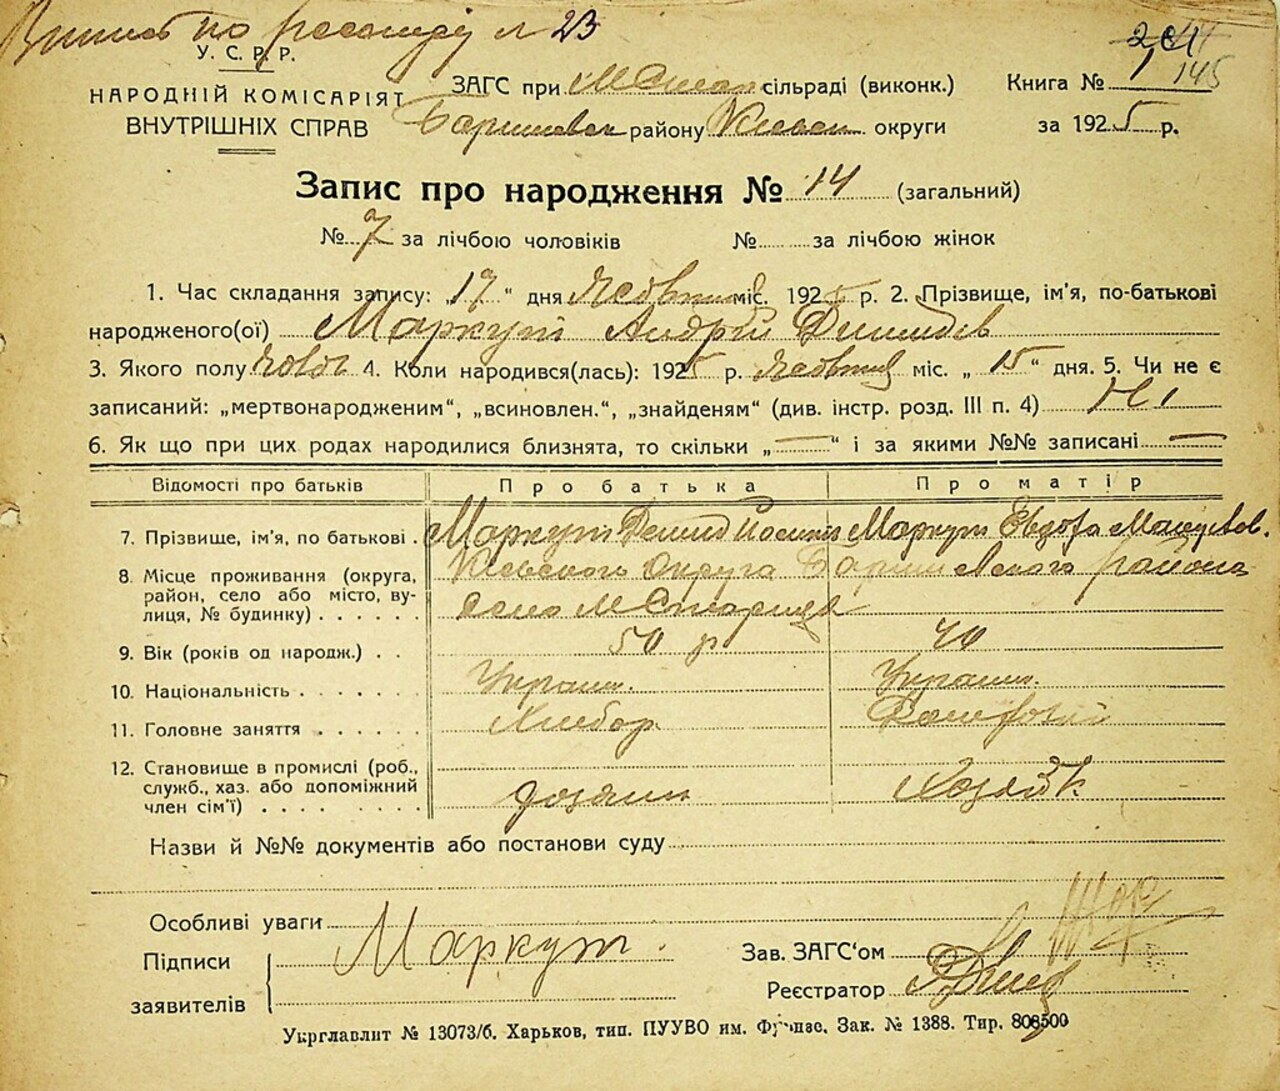 по № 23
У. С. Р. Р.
НАРОДНІЙ КОМІСАРІЯТ
ВНУТРІШНІХ СПРАВ
ЗАГС при МСтар сільраді (виконк.)
Баришевск району Киевск округи
Книга № 145
за 1925 р.
Запис про народження № 14 (загальний)
№ 7 за лічбою чоловіків № за лічбою жінок
1. Час складання запису: „17“ дня Жовтня міс. 1925 р. 2. Прізвище, ім'я, по-батькові
народженого(ої) Маркут Андрій Демидов
3. Якого полу чолов 4. Коли народився(лась): 1925 р. Жовтня міс. „15“ дня. 5. Чи не є
записаний: „мертвонародженим“, „всиновлен.“, „знайденям“ (див. інстр. розд. III п. 4) Ні
6. Як що при цих родах народилися близнята, то скільки „—“ і за якими №№ записані —
Відомості про батьків Про батька Про матір
7. Прізвище, ім'я, по батькові . Маркут Демид Маркут Евдокія
8. Місце проживання (округа, район, село або місто, вулиця, № будинку) . . . . . . Киевского Округа Баришевского района
село МСтариця
9. Вік (років од народж.) . . 50 р 40
10. Національність . . . . . . Украин. Украин.
11. Головне заняття . . . . . . Хлибор
12. Становище в промислі (роб., служб., хаз. або допоміжний член сім'ї) . . . . . . . .
Назви й №№ документів або постанови суду
Особливі уваги
Підписи
заявителів
Маркут.
Зав. ЗАГС'ом
Реєстратор
Укрглавлит № 13073/б. Харьков, тип. ПУУВО им. Фрунзе. Зак. № 1388. Тир.